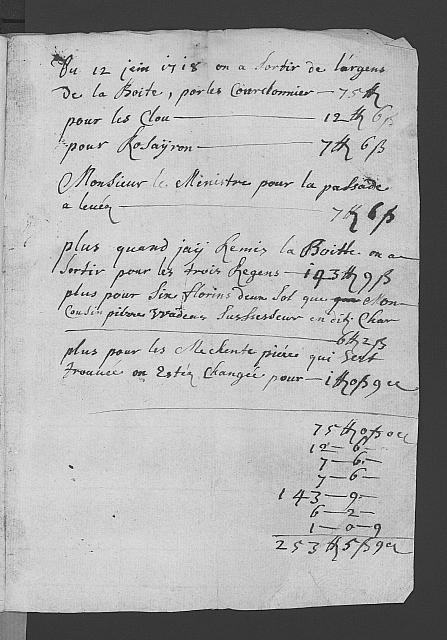 Du 12 juin 1718 on a Sortir de largens
De la Boite, por les Courdonnier — 75 ℔
pour les Clou — 12 ℔ 6 ß
pour Rosaÿron — 7 ℔ 6 ß
Monsieur le Ministre pour la passade
a leuéz — 7 ℔ 6 ß
plus quand jaÿ Remis la Boitte on a
Sortir pour les trois Regens — 143 ℔ 9 ß
plus pour Six florins deun Sol que Mon
Cousin Sussesseur en dit Char
6 ℔ 2 ß
plus pour les Mechente piéce qui Sest
trouuée on Estéz Changée pour — 1 ℔ 0 ß 9
75 ℔ 0 ß 0
12 — 6 —
7 — 6 —
7 — 6 —
143 — 9 —
6 — 2 —
1 — 0 — 9
253 ℔ 5 ß 9